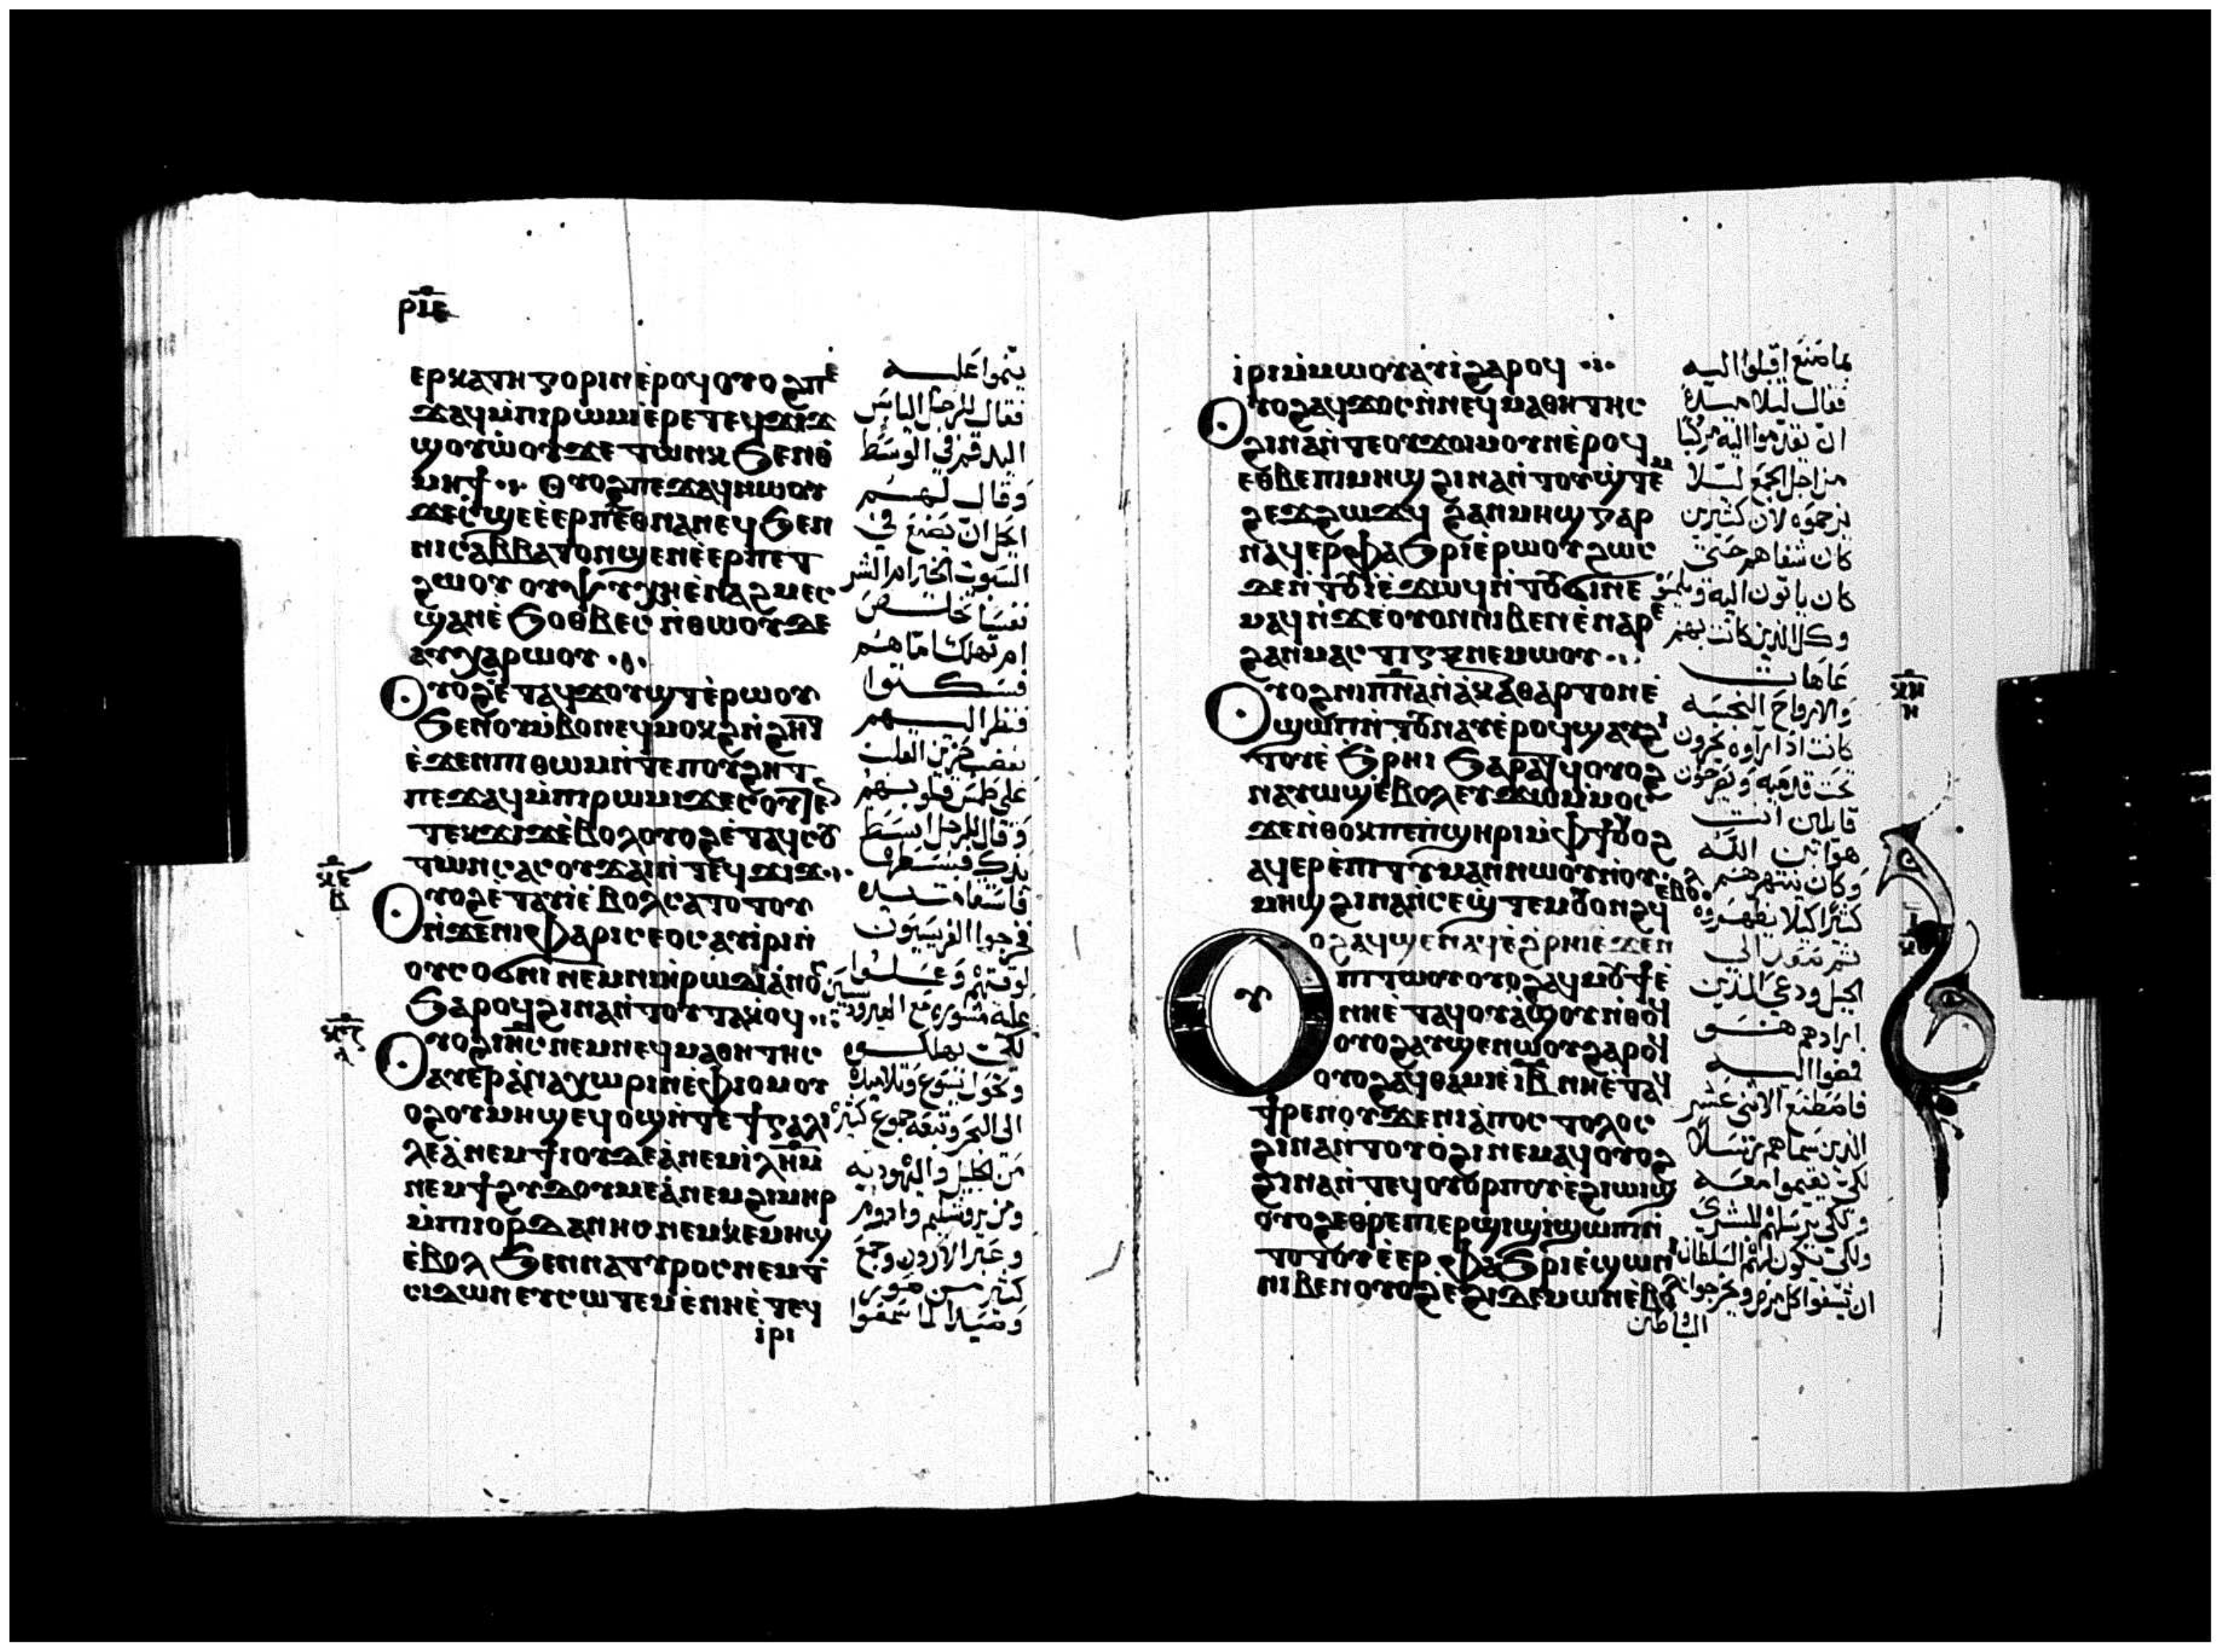 ⲣⲓⲉ
ⲉⲣⲕⲁⲧⲏⲅⲟⲣⲓⲛ ⲉ̀ⲣⲟϥ ⲟⲩⲟϩ ⲡⲉ
ϫⲁϥ ⲙ̀ⲡⲓⲣⲱⲙⲓ ⲉ̀ⲣⲉ ⲧⲉϥϫⲓϫ
ϣⲟⲩⲱ̀ⲟⲩ ϫⲉ ⲧⲱⲛⲕ ϧⲉⲛ ⲑ
ⲙⲏϯ ⲟⲩⲟϩ ⲡⲉϫⲁϥ ⲛⲱⲟⲩ
ϫⲉ ⲥ̀ϣⲉ ⲉ̀ⲉⲣ ⲡⲉⲑⲛⲁⲛⲉϥ ϧⲉⲛ
ⲛⲓⲥⲁⲃⲃⲁⲧⲟⲛ ϣⲉⲛ ⲉ̀ⲉⲣ ⲡⲉⲧ
ϩⲱⲟⲩ ⲟⲩⲯⲩⲭⲏ ⲉ̀ⲛⲁϩⲙⲉⲥ
ϣⲁⲛ ⲉ̀ϧⲟⲑⲃⲉⲥ ⲛ̀ⲑⲱⲟⲩ ⲇⲉ
ⲁⲩⲭⲁⲣⲱⲟⲩ
ⲟⲩⲟϩ ⲉ̀ⲧⲁϥϫⲟⲩϣⲧ ⲉ̀ⲣⲱⲟⲩ
ϧⲉⲛ ⲟⲩⲙ̀ⲃⲟⲛ ⲉϥⲙⲟⲕϩ ⲛ̀ϩⲏⲧ
ⲉ̀ϫⲉⲛ ⲡⲓⲑⲱⲙ ⲛ̀ⲧⲉ ⲡⲟⲩϩⲏⲧ
ⲡⲉϫⲁϥ ⲙ̀ⲡⲓⲣⲱⲙⲓ ϫⲉ ⲥⲟⲩⲧⲉⲛ
ⲧⲉⲕϫⲓϫ ⲉ̀ⲃⲟⲗ ⲟⲩⲟϩ ⲉ̀ⲧⲁϥⲥⲟⲩ
ⲧⲱⲛⲥ ⲁⲥⲟⲩϫⲁⲓ ⲛ̀ϫⲉ ⲧⲉϥϫⲓϫ
ⲟⲩⲟϩ ⲉⲧⲁⲩⲓ̀ ⲉ̀ⲃⲟⲗ ⲥⲁⲧⲟⲧⲟⲩ
ⲛ̀ϫⲉ ⲛⲓⲫⲁⲣⲓⲥⲉⲟⲥ ⲁⲩⲓ̀ⲣⲓ ⲛ̀
ⲟⲩⲥⲟϭⲛⲓ ⲛⲉⲙ ⲛⲓⲏ̀ⲣⲱⲇⲓⲁ̀ⲛⲟⲥ
ϧⲁⲣⲟϥ ϩⲓⲛⲁ ⲛ̀ⲧⲟⲩⲧⲁⲕⲟϥ
ⲟⲩⲟϩ ⲓⲏⲥ ⲛⲉⲙ ⲛⲉϥⲙⲁⲑⲏⲧⲏⲥ
ⲁⲩⲉⲣⲁ̀ⲛⲁⲭⲱⲣⲓⲛ ⲉ̀ⲫⲓⲟⲙ ⲟⲩ
ⲟϩ ⲟⲩⲙⲏϣ ⲉϥⲟϣ ⲛ̀ⲧⲉ ϯⲅⲁⲗⲓ
ⲗⲉⲁ̀ ⲛⲉⲙ ϯⲓⲟⲩⲇⲉⲁ̀ ⲛⲉⲙ ⲓ̀ⲗⲏⲙ
ⲛⲉⲙ ϯϩⲩⲇⲟⲩⲙⲉⲁ̀ ⲛⲉⲙ ϩⲓⲙⲏⲣ
ⲙ̀ⲡⲓⲟⲣⲇⲁⲛⲏⲥ ⲛⲉⲙ ⲕⲉⲙⲏϣ
ⲉ̀ⲃⲟⲗ ϧⲉⲛ ⲛⲁⲧⲩⲣⲟⲥ ⲛⲉⲙ ⲧ
ⲥⲓⲇⲱⲛ ⲉⲩⲥⲱⲧⲉⲙ ⲉ̀ⲛⲏⲉ̀ⲧⲉϥ
ⲓ̀ⲣⲓ
ينموا عليه
فقال للرجل اليابس
اليد قم في الوسط
وقال لهم
ايحل ان يصنع في
السبوت الخير ام الشر
نفسا تخلص
ام تهلك اما هم
فسكتوا
فنظر اليهم
بغضب حزين القلب
على طمس قلوبهم
وقال للرجل ابسط
يدك فبسطها
فاستقامت يده
فخرجوا الفريسيون
لوقتهم وعملوا
عليه مشورة مع الهيرودسيين
لكي يهلكوه
وتحول يسوع وتلاميذه
الى البحر وتبعه جموع كثيرة
من الجليل واليهودية
ومن يروشليم وادوم
وعبر الاردن وجمع
كثير من صور
وصيدا لما سمعوا
ⲓ̀ⲣⲓ ⲙ̀ⲙⲱⲟⲩ ⲁⲩⲓ̀ ϩⲁⲣⲟϥ
ⲟⲩⲟϩ ⲁϥϫⲟⲥ ⲛ̀ⲛⲉϥⲙⲁⲑⲏⲧⲏⲥ
ϩⲓⲛⲁ ⲛ̀ⲧⲉ ⲟⲩϫⲟⲓ ⲙⲟⲩⲛ ⲉ̀ⲣⲟϥ
ⲉⲑⲃⲉ ⲡⲓⲙⲏϣ ϩⲓⲛⲁ ⲛ̀ⲧⲟⲩϣ̀ⲧⲉⲙ
ϩⲉϫϩⲱϫϥ ϩⲁⲛⲙⲏϣ ⲅⲁⲣ
ⲛⲁϥⲉⲣⲫⲁϧⲣⲓ ⲉ̀ⲣⲱⲟⲩ ϩⲱⲥ
ⲇⲉ ⲛ̀ⲧⲟⲩⲓ̀ ⲉ̀ϫⲱϥ ⲛ̀ⲧⲟⲩϭⲓ ⲛⲉ
ⲙⲁϥ ⲛ̀ϫⲉ ⲟⲩⲟⲛ ⲛⲓⲃⲉⲛ ⲉ̀ⲛⲁⲣⲉ
ϩⲁⲛⲙⲁⲥⲧⲓⲅⲝ ⲛⲉⲙⲱⲟⲩ
ⲟⲩⲟϩ ⲛⲓⲡⲛⲁ ⲛ̀ⲁ̀ⲕⲁⲑⲁⲣⲧⲟⲛ ⲉ̀
ϣⲱⲡ ⲛ̀ⲧⲟⲩⲛⲁⲩ ⲉ̀ⲣⲟϥ ϣⲁⲩϩⲓ
ⲧⲟⲩ ⲉ̀ϧⲣⲏⲓ ϧⲁⲣⲁⲧϥ ⲟⲩⲟϩ
ⲛⲁⲩⲱϣ ⲉ̀ⲃⲟⲗ ⲉⲩϫⲱ ⲙ̀ⲙⲟⲥ
ϫⲉ ⲛ̀ⲑⲟⲕ ⲡⲉ ⲡ̀ϣⲏⲣⲓ ⲙ̀ⲫϯ ⲟⲩⲟϩ
ⲁϥⲉⲣⲉ̀ⲡⲓⲧⲓⲙⲁⲛ ⲛⲱⲟⲩ ⲛ̀ⲟⲩ
ⲙⲏϣ ϩⲓⲛⲁ ⲛ̀ⲥⲉϣ̀ⲧⲉⲙⲟⲩⲟⲛϩϥ ⲉⲃⲟⲗ
ⲟⲩⲟϩ ⲁϥϣⲉⲛⲁϥ ⲉ̀ϩ̀ⲣⲏⲓ ⲉ̀ϫⲉⲛ
ⲡⲓⲧⲱⲟⲩ ⲟⲩⲟϩ ⲁϥⲙⲟⲩϯ ⲉ̀
ⲛⲏⲉ̀ⲧⲁϥⲟⲩⲁϣⲟⲩ ⲛ̀ⲑⲟϥ
ⲟⲩⲟϩ ⲁⲩϣⲉⲛⲱⲟⲩ ϩⲁⲣⲟϥ
ⲟⲩⲟϩ ⲁϥⲑⲁⲙⲓⲉ̀ ⲓⲃ ⲛⲏⲉ̀ⲧⲁϥ
ϯⲣⲉⲛⲟⲩ ϫⲉ ⲛⲓⲁ̀ⲡⲟⲥⲧⲟⲗⲟⲥ
ϩⲓⲛⲁ ⲛ̀ⲧⲟⲩⲟ̀ϩⲓ ⲛⲉⲙⲁϥ ⲟⲩⲟϩ
ϩⲓⲛⲁ ⲛ̀ⲧⲉϥⲟⲩⲟⲣⲡⲟⲩ ⲉ̀ϩⲓⲱⲓϣ
ⲟⲩⲟϩ ⲉⲑⲣⲉ ⲡⲉⲣϣⲓϣⲓ ϣⲱⲡⲓ ⲛ̀
ⲧⲟⲧⲟⲩ ⲉ̀ⲉⲣⲫⲁϧⲣⲓ ⲉ̀ϣⲱⲛⲓ
ⲛⲓⲃⲉⲛ ⲟⲩⲟϩ ⲉ̀ϩⲓ ⲇⲉⲙⲱⲛ ⲉ̀ⲃⲟⲗ
بما صنع اقبلوا اليه
فقال لتلاميذه
ان تقدموا اليه مركبا
من اجل الجمع لئلا
يزحموه لان كثيرين
كان شفاهم حتى
كان ياتون اليه ويلمسوه
وكل الذين كانت بهم
عاهات
والارواح النجسة
كانت اذا راوه يخرون
تحت قدميه ويصرخون
قايلين انت
هو ابن الله
وكان ينتهرهم
كثيرا كيلا يظهروه
ثم صعد الى
الجبل ودعى الذين
ارادهم هو
فمضوا اليه
فاصطنع الاثنى عشر
الذين سماهم رسلا
لكي يقيموا معه
ولكي يرسلهم للبشرى
ولكي يكون لهم السلطان
ان يشفوا كل مرض ويخرجوا
الشياطين